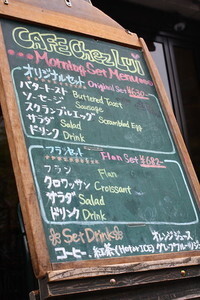 CAFE Chez Lui
Morning Set Menu
オリジナルセット Original Set ¥630
バタートースト Buttered Toast
ソーセージ Sausage
スクランブルエッグ Scrambled Egg
サラダ Salad
ドリンク Drink
フランセット Flan Set ¥682
フラン Flan
クロワッサン Croissant
サラダ Salad
ドリンク Drink
Set Drink
コーヒー 紅茶(Hot or ICE) オレンジジュース
グレープフルーツジュース